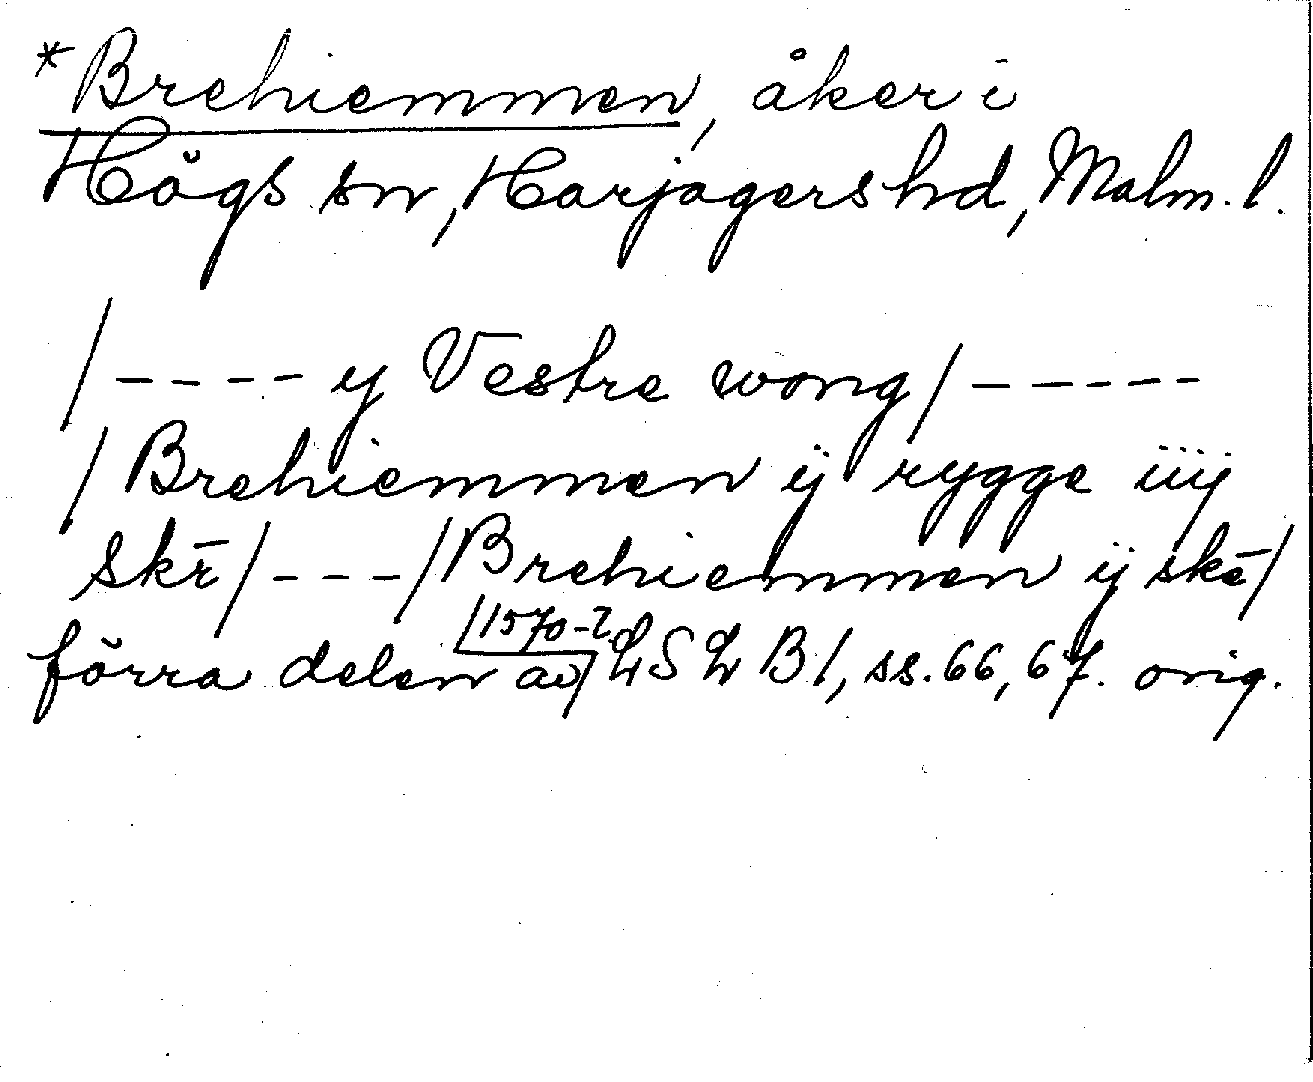 *Brehiemmen, åker i
Högs sn, Harjagers hd, Malm. l.
/---- y Vestre wong/-----
/Brehiemmen ij rygge iiij
skē/---/Brehiemmen ij skē/
förra delen av /1570-t. LSLB1, ss. 66, 67. orig.